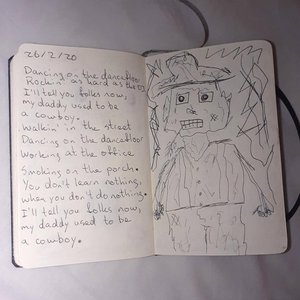 26/2/20
Dancing on the dancefloor
Rockin' as hard as the DJ
I'll tell you folks now,
my daddy used to be
a cowboy.
Walkin' in the street
Dancing on the dancefloor
Working at the office
Smoking on the porch.
You don't learn nothing,
when you don't do nothing.
I'll tell you folks now,
my daddy used to be
a cowboy.